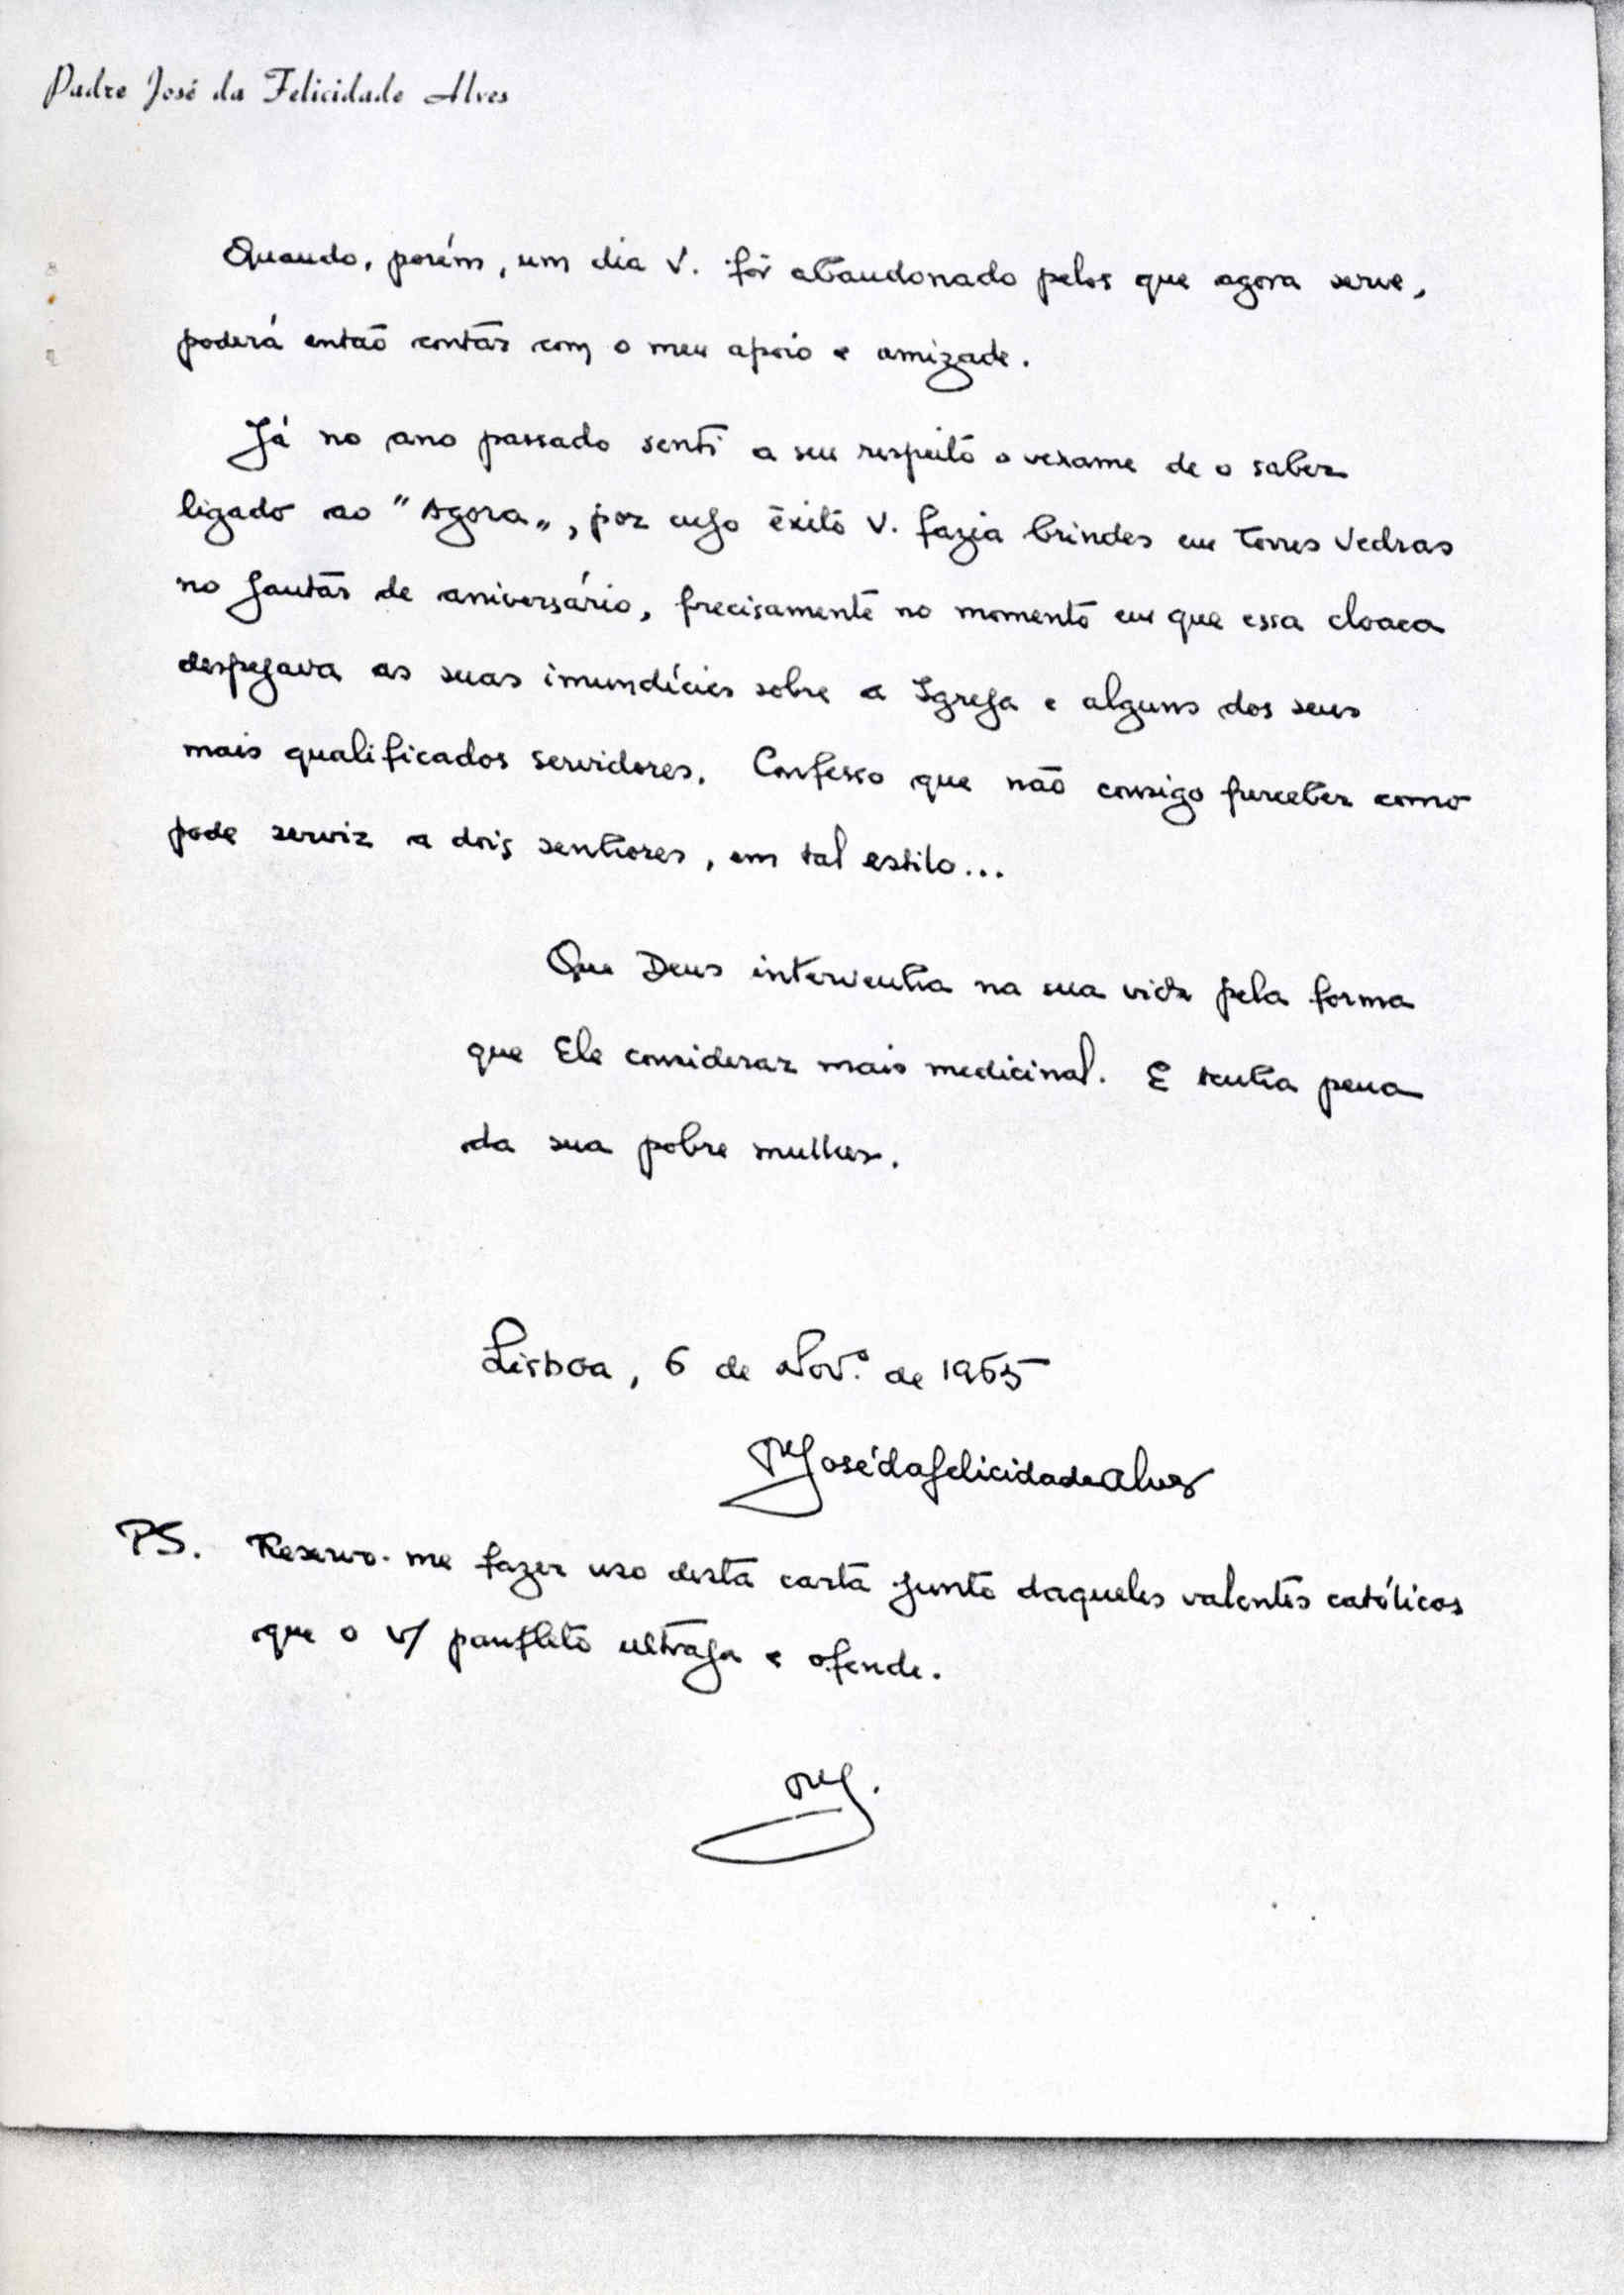 Padre José da Felicidade Alves
Quando, porém, um dia V. fôr abandonado pelos que agora serve,
poderá então contar com o meu apoio e amizade.
Já no ano passado senti a seu respeito o vexame de o saber
ligado ao "Agora", por cujo êxito V. fazia brindes em Torres Vedras
no jantar de aniversário, precisamente no momento em que essa cloaca
despejava as suas imundícies sobre a Igreja e alguns dos seus
mais qualificados servidores. Confesso que não consigo perceber como
pode servir a dois senhores, em tal estilo...
Que Deus intervenha na sua vida pela forma
que Ele considerar mais medicinal. E tenha pena
da sua pobre mulher.
Lisboa, 6 de Nov.º de 1965
P.e José da Felicidade Alves
PS. Reservo-me fazer uso desta carta junto daqueles valentes católicos
que o v/ panfleto ultraja e ofende.